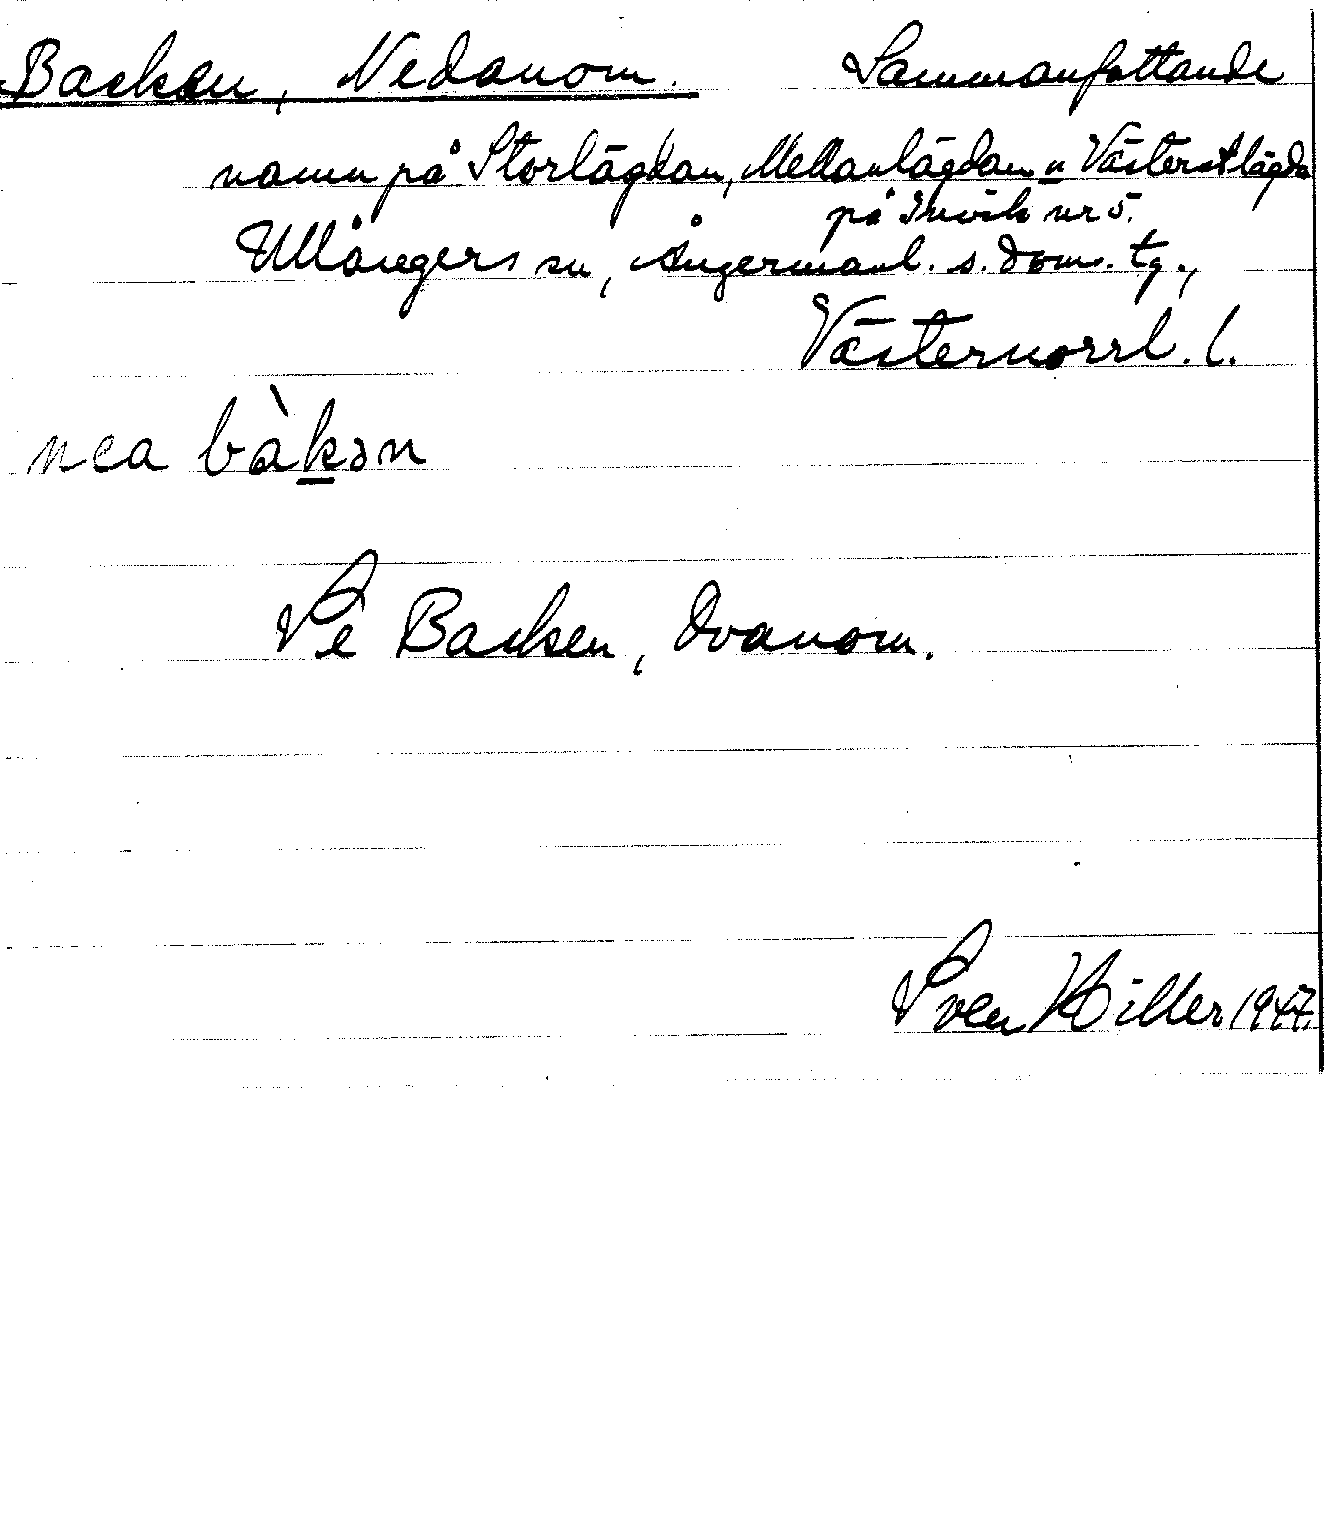 Backen, Nedanom. Sammanfattande
namn på Storlägdan, Mellanlägdan o Västerstlägda
på Invik nr 5.
Ullångers sn, Ångermanl. s. doms. tg.,
Västernorrl. l.
nea bàkən
Se Backen, Ovanom.
Sven Hiller 1947.